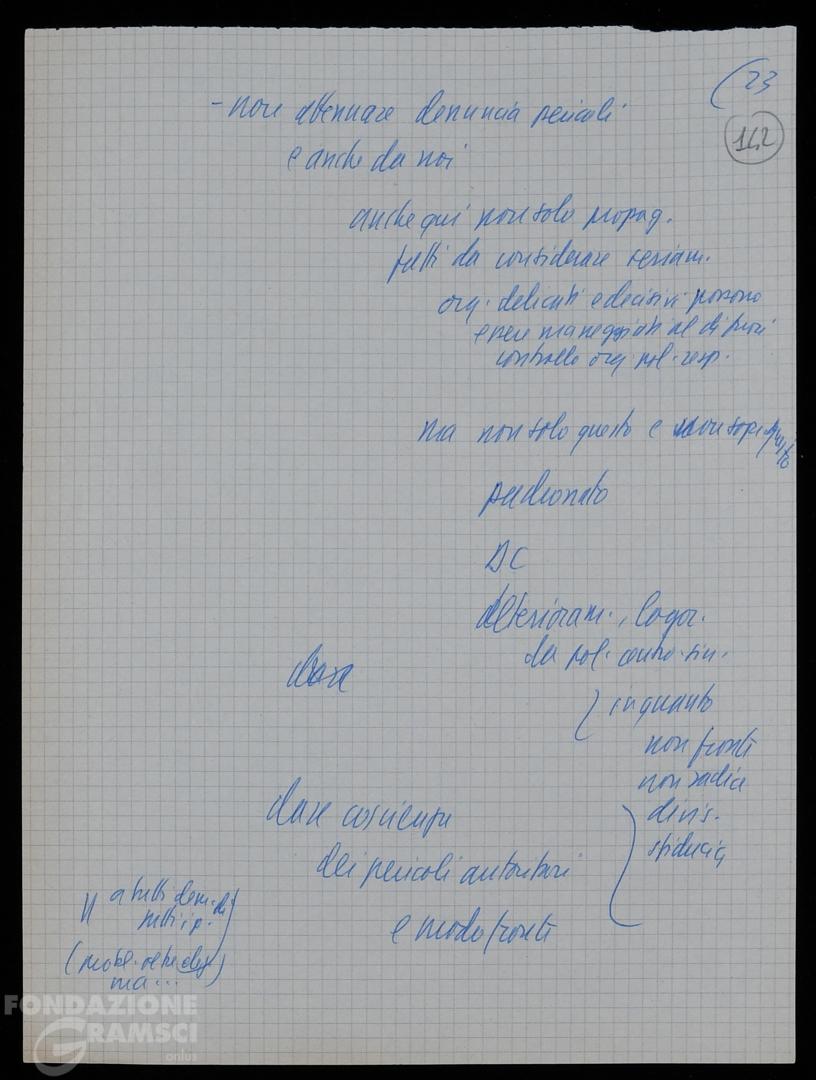 (23
142
- non attenuare denuncia pericoli
e anche da noi
anche qui non solo propag.
fatti da considerare seriam.
org. delicati e decisivi possono
essere maneggiati al di fuori
controllo org. pol. resp.
ma non solo questo e non sopr. questo
padronato
DC
deterioram., logor.
da pol. centro-sin.
dare
in quanto
non fronti
non radici
divis.
sfiducia
dare coscienza
dei pericoli autoritari
e modo fronti
a tutti dem. di
tutti i p.
(probl. oltre
ma...
FONDAZIONE
GRAMSCI
onlus